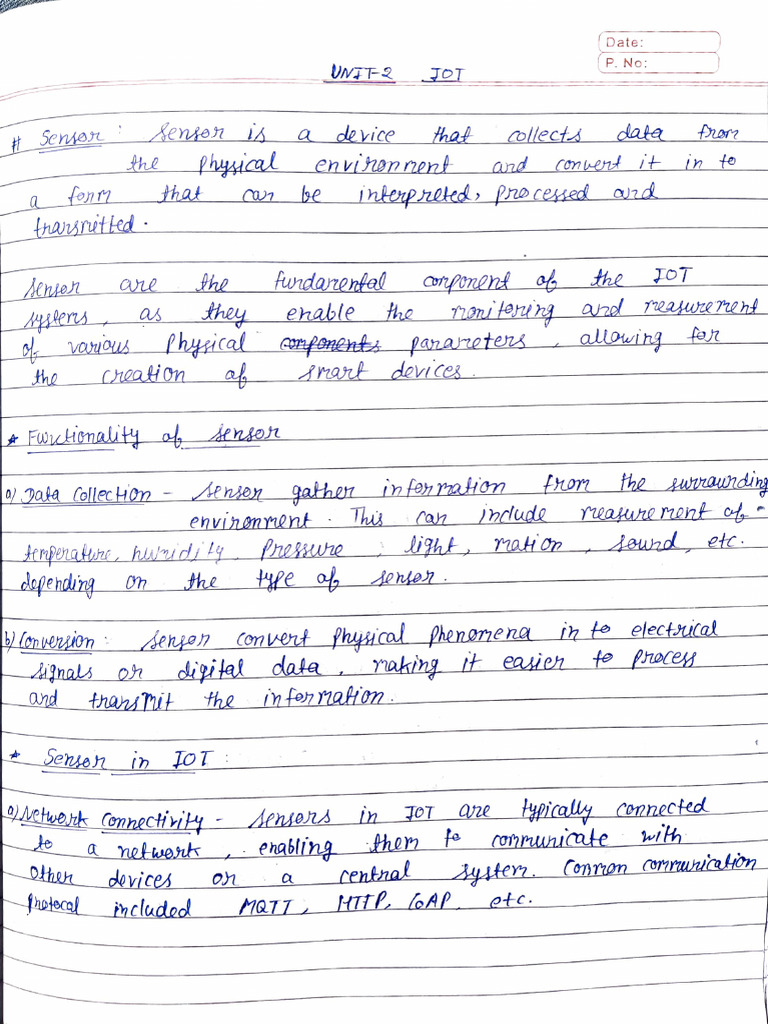 Date:
P. No:
UNIT-2 IOT
# Sensor: Sensor is a device that collects data from
the physical environment and convert it in to
a form that can be interpreted, processed and
transmitted.
Sensor are the fundamental component of the IOT
systems, as they enable the monitoring and measurement
of various physical components parameters, allowing for
the creation of smart devices.
* Functionality of sensor
a) Data Collection - sensor gather information from the surrounding
environment. This can include measurement of -
temperature, humidity, pressure, light, motion, sound, etc.
depending on the type of sensor.
b) Conversion: sensor convert physical phenomena in to electrical
signals or digital data, making it easier to process
and transmit the information.
* Sensor in IOT:
a) Network Connectivity - sensors in IOT are typically connected
to a network, enabling them to communicate with
other devices or a central system. Common communication
protocal included MQTT, HTTP, CoAP, etc.